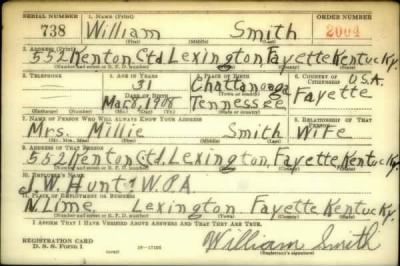 SERIAL NUMBER 1. NAME (Print) ORDER NUMBER
738 William Smith 2004
(First) (Middle) (Last)
2. ADDRESS (Print)
552 Kenton Ctd. Lexington Fayette Kentucky.
3. TELEPHONE 4. AGE IN YEARS 5. PLACE OF BIRTH 6. COUNTRY OF CITIZENSHIP
31 Chattanooga U.S.A.
DATE OF BIRTH Fayette
Mar 8, 1908 Tennessee
(Exchange) (Number) (Mo.) (Day) (Yr.) (State or country)
7. NAME OF PERSON WHO WILL ALWAYS KNOW YOUR ADDRESS 8. RELATIONSHIP OF THAT PERSON
Mrs. Millie Smith Wife
(Mr., Mrs., Miss) (First) (Middle) (Last)
9. ADDRESS OF THAT PERSON
552 Kenton Ctd. Lexington, Fayette Kentucky.
(Number and street or R. F. D. number) (Town) (County) (State)
10. EMPLOYER'S NAME
J.W. Hunt W.P.A.
11. PLACE OF EMPLOYMENT OR BUSINESS
N. Lime, Lexington Fayette Kentucky.
(Number and street or R. F. D. number) (Town) (County) (State)
I AFFIRM THAT I HAVE VERIFIED ABOVE ANSWERS AND THAT THEY ARE TRUE.
REGISTRATION CARD
D. S. S. Form 1 (over) William Smith
(Registrant's signature)